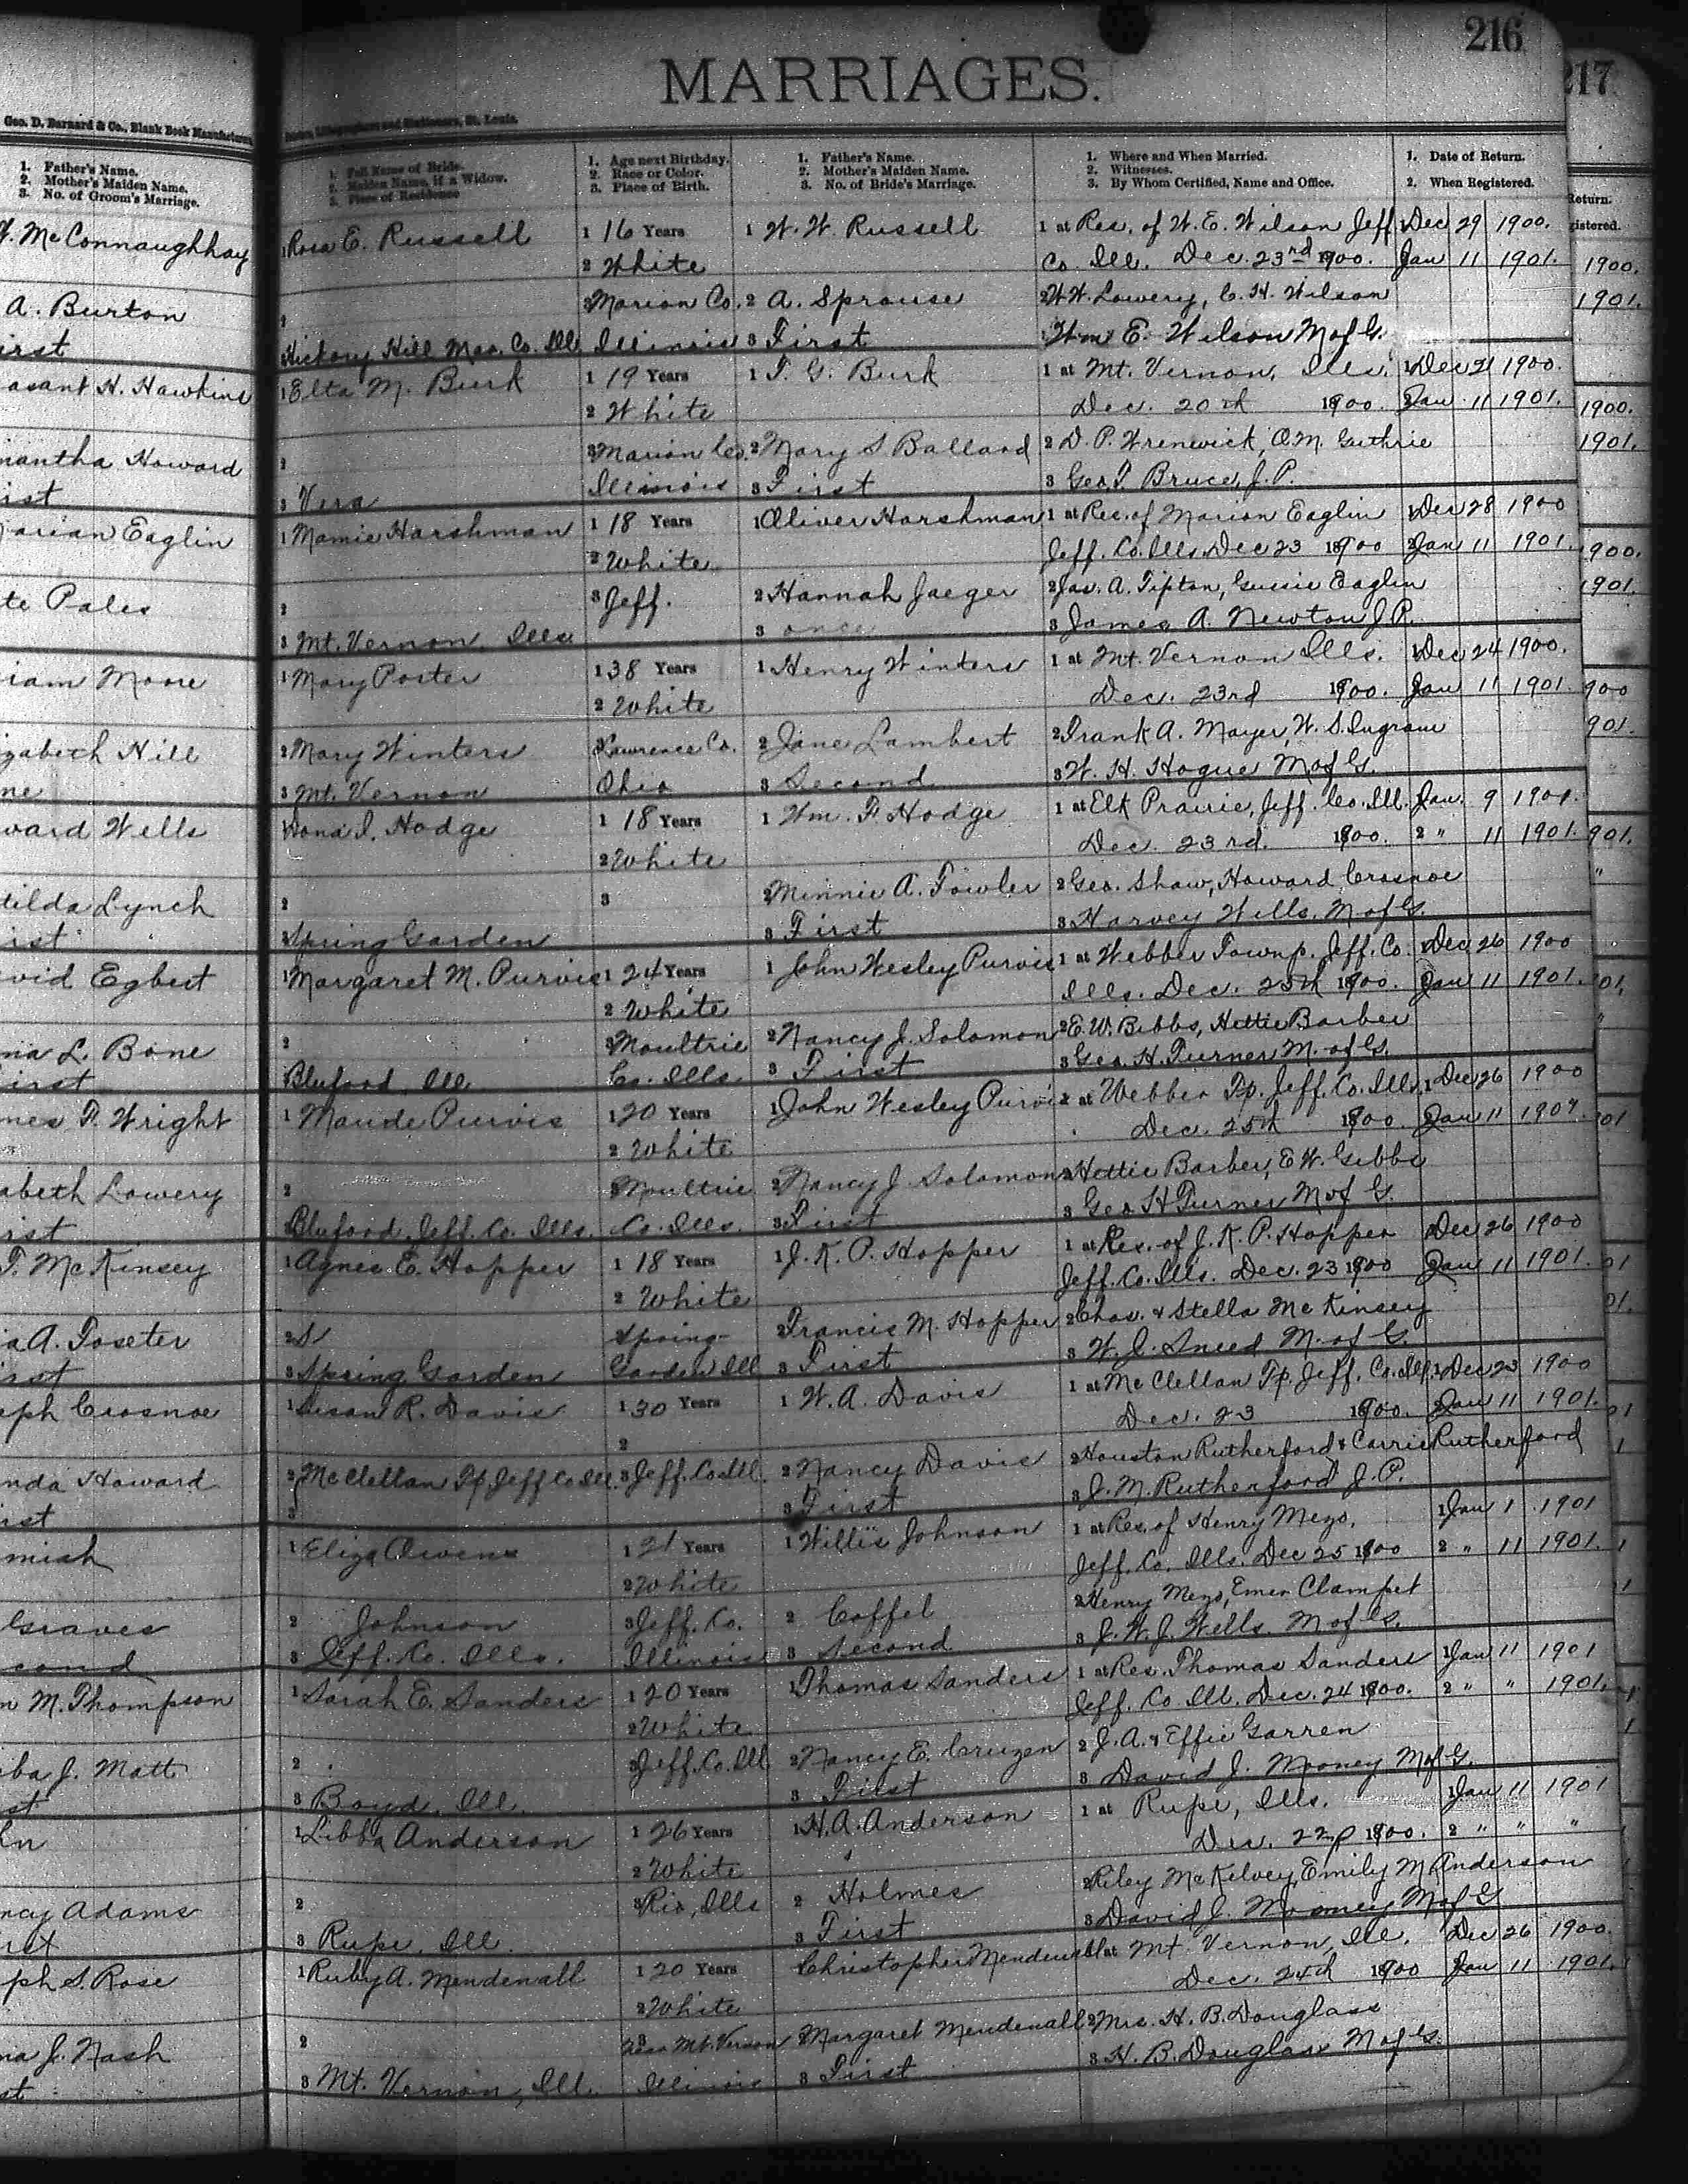 216
217
MARRIAGES.
Geo. D. Barnard & Co., Blank Book Manufacturers
Lithographers and Stationers, St. Louis.
1. Father's Name.
2. Mother's Maiden Name.
3. No. of Groom's Marriage.
1. Full Name of Bride.
2. Maiden Name, if a Widow.
3. Place of Residence
1. Age next Birthday.
2. Race or Color.
3. Place of Birth.
1. Father's Name.
2. Mother's Maiden Name.
3. No. of Bride's Marriage.
1. Where and When Married.
2. Witnesses.
3. By Whom Certified, Name and Office.
1. Date of Return.
2. When Registered.
McConnaughhay 1 Rosa E. Russell 1 16 Years 1 W. W. Russell 1 at Res. of W. E. Wilson Jeff 1 Dec 29 1900.
2 White Co. Ill. Dec. 23rd 1900. Jan 11 1901.
A. Burton 2 Marion Co. 2 A. Sprouse 2 W. W. Lowery, C. H. Wilson
irst Hickory Hill Mar. Co. Ill Illinois 3 First Wm E. Wilson M of G.
asant H. Hawkins 1 Elta M. Burk 1 19 Years 1 T. G. Burk 1 at Mt. Vernon, Ills. 1 Dec 21 1900.
2 White Dec. 20th 1900. Jan 11 1901.
mantha Howard 2 3 Marion Co. 2 Mary S Ballard 2 D. P. Wrenwick, O.M. Guthrie
ist 3 Vera Illinois 3 First 3 Geo. T. Bruce, J. P.
arian Eaglin 1 Mamie Harshman 1 18 Years 1 Oliver Harshman 1 at Res. of Marion Eaglin 1 Dec 28 1900
2 White Jeff. Co. Ills Dec 23 1900 2 Jan 11 1901.
te Pales 2 3 Jeff. 2 Hannah Jaeger 2 Jas. A. Tipton, Gussie Eaglin
3 Mt. Vernon, Ills 3 once 3 James A. Newton J. P.
iam Moore 1 Mary Porter 1 38 Years 1 Henry Winters 1 at Mt. Vernon Ills. 1 Dec 24 1900.
2 White Dec. 23rd 1900. Jan 11 1901.
zabeth Hill 2 Mary Winters 3 Lawrence Co. 2 Jane Lambert 2 Frank A. Mayer, W. S. Ingram
ne 3 Mt. Vernon Ohio 3 Second 3 W. H. Hogue M of G.
ward Wells 1 Hodge 1 18 Years 1 Wm. F. Hodge 1 at Elk Prairie, Jeff. Co. Ill. Jan. 9 1901.
2 White Dec. 23rd. 1900. 2 " 11 1901.
tilda Lynch 2 3 2 Minnie A. Fowler 2 Geo. Shaw, Howard Crosnoe
irst 3 Spring Garden 3 First 3 Harvey Wells, M of G.
vid Egbert 1 Margaret M. Purvis 1 24 Years 1 John Wesley Purvis 1 at Webber Townp. Jeff. Co. 1 Dec 26 1900
2 White Ills. Dec. 25th 1900. 2 Jan 11 1901.
na L. Bone 2 3 Moultrie 2 Nancy J. Solomon 2 E. W. Bibbs, Hettie Barber
irst Bluford, Ill Co. Ills. 3 First 3 Geo. H. Turner M. of G.
mes F. Wright 1 Maude Purvis 1 20 Years 1 John Wesley Purvis at Webber Tp. Jeff. Co. Ills. 1 Dec 26 1900
2 White Dec. 25th 1900. 2 Jan 11 1901.
abeth Lowery 2 3 Moultrie 2 Nancy J. Solomon 2 Hettie Barber, E. W. Gibbs
irst Bluford, Jeff. Co. Ills. Co. Ills. 3 First 3 Geo H Turner M of G.
F. McKinsey 1 Agnes E. Hopper 1 18 Years 1 J. K. P. Hopper 1 at Res. of J. K. P. Hopper Dec 26 1900
2 White Jeff. Co. Ills. Dec. 23 1900 Jan 11 1901.
ia A. Foseter 2 S Spring- 2 Francis M. Hopper 2 Chas. & Stella McKinsey
irst 3 Spring Garden Garden Ill 3 First 3 W. J. Sneed M. of G.
eph Crosnoe 1 Susan R. Davis 1 30 Years 1 W. A. Davis 1 at McClellan Tp. Jeff. Co. Ill. 1 Dec 23 1900
2 Dec. 23 1900. 2 Jan 11 1901.
nda Howard 2 McClellan Tp Jeff Co Ill. 3 Jeff. Co. Ill. 2 Nancy Davis 2 Houston Rutherford & Carrie Rutherford
ist 3 3 First 3 J. M. Rutherford J. P.
mish 1 Eliza Owens 1 21 Years 1 Willis Johnson 1 at Res. of Henry Mezo, 1 Jan 1 1901
2 White Jeff. Co. Ills. Dec 25 1900 2 " 11 1901.
Graves 2 Johnson 3 Jeff. Co. 2 Coffel 2 Henry Mezo, Emer Clampet
cond 3 Jeff. Co. Ills. Illinois 3 Second 3 J. W. J. Wells. M of G.
n M. Thompson 1 Sarah E. Sanders 1 20 Years 1 Thomas Sanders 1 at Res. Thomas Sanders 1 Jan 11 1901
2 White Jeff. Co. Ill. Dec. 24 1900. 2 " " 1901.
ba J. Matt 2 3 Jeff. Co. Ill 2 Nancy E. Cruzen 2 J. A. & Effie Garren
st 3 Boyd, Ill. 3 First 3 David J. Mooney M of G.
hn 1 Libba Anderson 1 26 Years 1 H. A. Anderson 1 at Rupe, Ills. 1 Jan 11 1901
2 White Dec. 22 1900. 2 " " "
ncy Adams 2 3 Rio, Ills 2 Holmes 2 Riley McKelvey, Emily M Anderson
rst 3 Rupe, Ill. 3 First 3 David J. Mooney M of G
ph S. Rose 1 Ruby A. Mendenall 1 20 Years Christopher Mendenall 1 at Mt. Vernon, Ill. Dec 26 1900.
2 White Dec. 24th 1900 Jan 11 1901.
na J. Nash 2 3 Near Mt. Vernon 2 Margaret Mendenall 2 Mrs. H. B. Douglass
st 3 Mt. Vernon, Ill. Illinois 3 First 3 H. B. Douglass M of G.